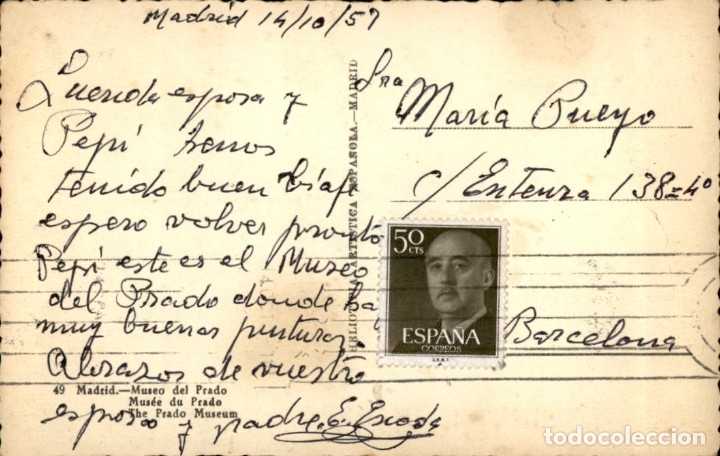 Madrid 14/10/57
Querida esposa y
Pepi hemos
tenido buen viaje
espero volver pronto
Pepi este es el Museo
del Prado donde ha
muy buenas pinturas
Abrazos de vuestro
esposo y padre. E.
Sra
María Pueyo
c/ Entenza 138=4º
Barcelona
HELIOTIPIA ARTÍSTICA ESPAÑOLA.—MADRID
50 CTS
ESPAÑA
CORREOS
49 Madrid.—Museo del Prado
Musée du Prado
The Prado Museum
todocoleccion.net